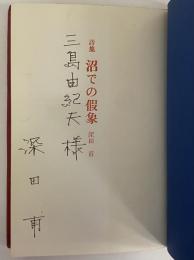 詩集 沼での假象
深田 甫
三島由紀夫様
深田甫